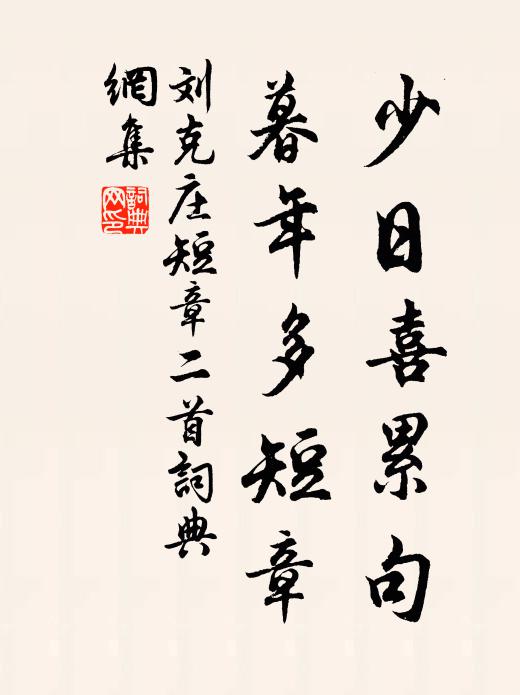 少日喜累句
暮年多短章
刘克庄短章二首詞典
網集
詞典
网印